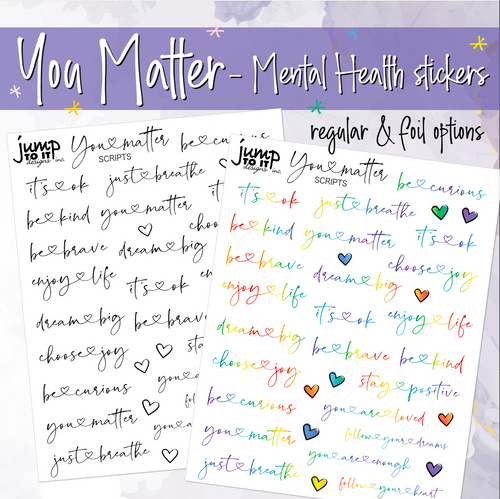 You Matter - Mental Health stickers
regular & foil options
jump TO IT designs inc.
You♡matter
SCRIPTS
be♡curious
it's♡ok
just♡breathe
be♡kind
you♡matter
choose
be♡brave
dream♡big
enjoy♡life
it's♡ok
dream♡big
be♡brave
choose♡joy
stay
be♡curious
you♡are
you♡matter
just♡breathe
jump TO IT designs inc.
You♡matter
SCRIPTS
be♡curious
it's♡ok
just♡breathe
be♡kind
you♡matter
it's♡ok
be♡brave
dream♡big
choose♡joy
enjoy♡life
it's♡ok
enjoy♡life
dream♡big
be♡brave
be♡kind
choose♡joy
stay♡positive
be♡curious
you♡are♡loved
you♡matter
follow♡your♡dreams
just♡breathe
you♡are♡enough
follow♡your♡heart